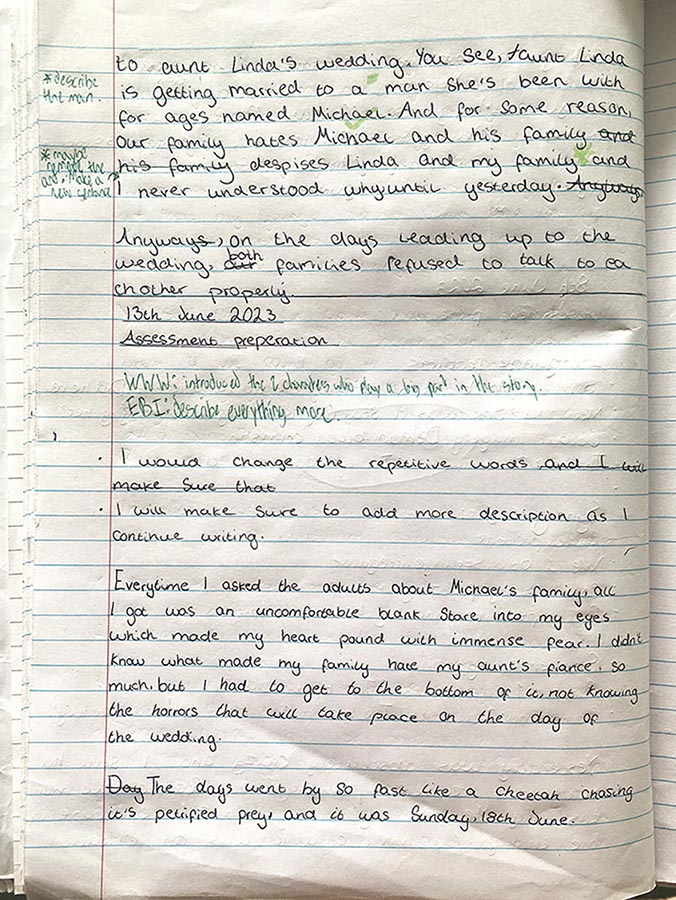 to aunt Linda's wedding. You see, taunt Linda
*describe
the man.
is getting married to a man she's been with
for ages named Michael. And for some reason,
our family hates Michael and his family and
*maybe
remove the
and, make a
new sentence
his family despises Linda and my family and
I never understood why until yesterday. Anyways
Anyways, on the days leading up to the
wedding, our both families refused to talk to ea
chother properly.
13th June 2023
Assessment preperation
WWW: introduced the 2 characters who play a big part in the story.
EBI: describe everything more.
· I would change the repetitive words and I will
make sure that
· I will make sure to add more description as I
continue writing.
Everytime I asked the adults about Michael's family, all
I got was an uncomfortable blank stare into my eyes
which made my heart pound with immense fear. I didn't
know what made my family hate my aunt's fiance so
much, but I had to get to the bottom of it, not knowing
the horrors that will take place on the day of
the wedding.
Day The days went by so fast like a cheetah chasing
it's petrified prey, and it was Sunday, 18th June.